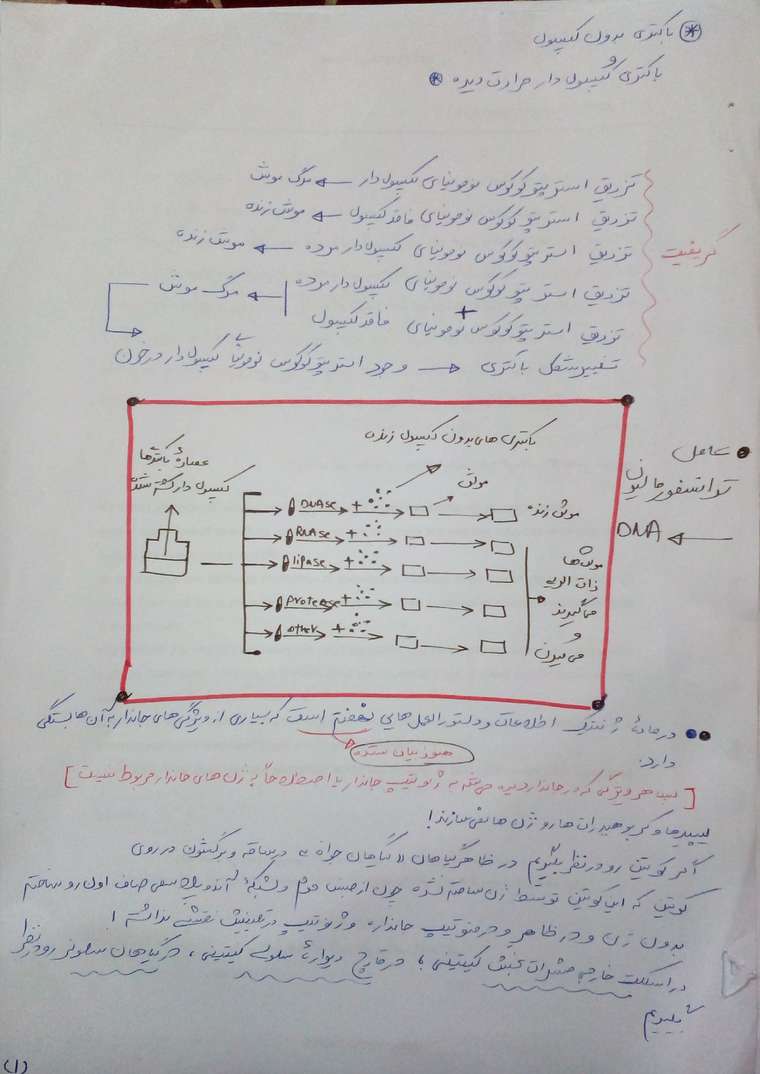 باکتری بدون کپسول
و
باکتری کپسول دار حرارت دیده
گریفیت
تزریق استرپتوکوکوس نومونیای کپسول دار ← مرگ موش
تزریق استرپتوکوکوس نومونیای فاقد کپسول ← موش زنده
تزریق استرپتوکوکوس نومونیای کپسول دار مرده ← موش زنده
تزریق استرپتوکوکوس نومونیای کپسول دار مرده
+
تزریق استرپتوکوکوس نومونیای فاقد کپسول
← مرگ موش
تغییر شکل باکتری ← وجود استرپتوکوکوس نومونیای کپسول دار در خون
عامل
ترانسفورماسیون
← DNA
باکتری های بدون کپسول زنده
عصارهٔ باکتریها
کپسول دار کشته شده
موش
DNAse +
موش زنده
RNAse +
lipase +
protease +
other +
موش ها
ذات الریه
می گیرند
و
می میرن
در مادهٔ ژنتیک اطلاعات و دستورالعمل هایی نهفته است که بسیاری از ویژگی های جاندار به آن ها بستگی
دارد.
هنوز بیان نشده
[پس هر ویژگی که در جاندار دیده می شه به ژنوتیپ جاندار یا اصطلاحاً به ژن های جاندار مربوط نیست]
لیپیدها و کربوهیدرات ها رو ژن ها نمی سازند!
اگر کوتین رو در نظر بگیریم در ظاهر گیاهان « گیاهان جوان به در ساقه و برگشون در روی
کوتین که این کوتین توسط ژن ساخته نشده چون از جنس موم و شبکهٔ آندوپلاسمی صاف اون رو ساخته
بدون ژن و در ظاهر و در فنوتیپ جانداره و ژنوتیپ در تعیینش نقشی نداشته!
در اسکلت خارجی حشرات بخش کیتینی، در قارچ دیوارهٔ سلولی کیتینی، در گیاهان سلولز رو در نظر
بگیریم
(1)